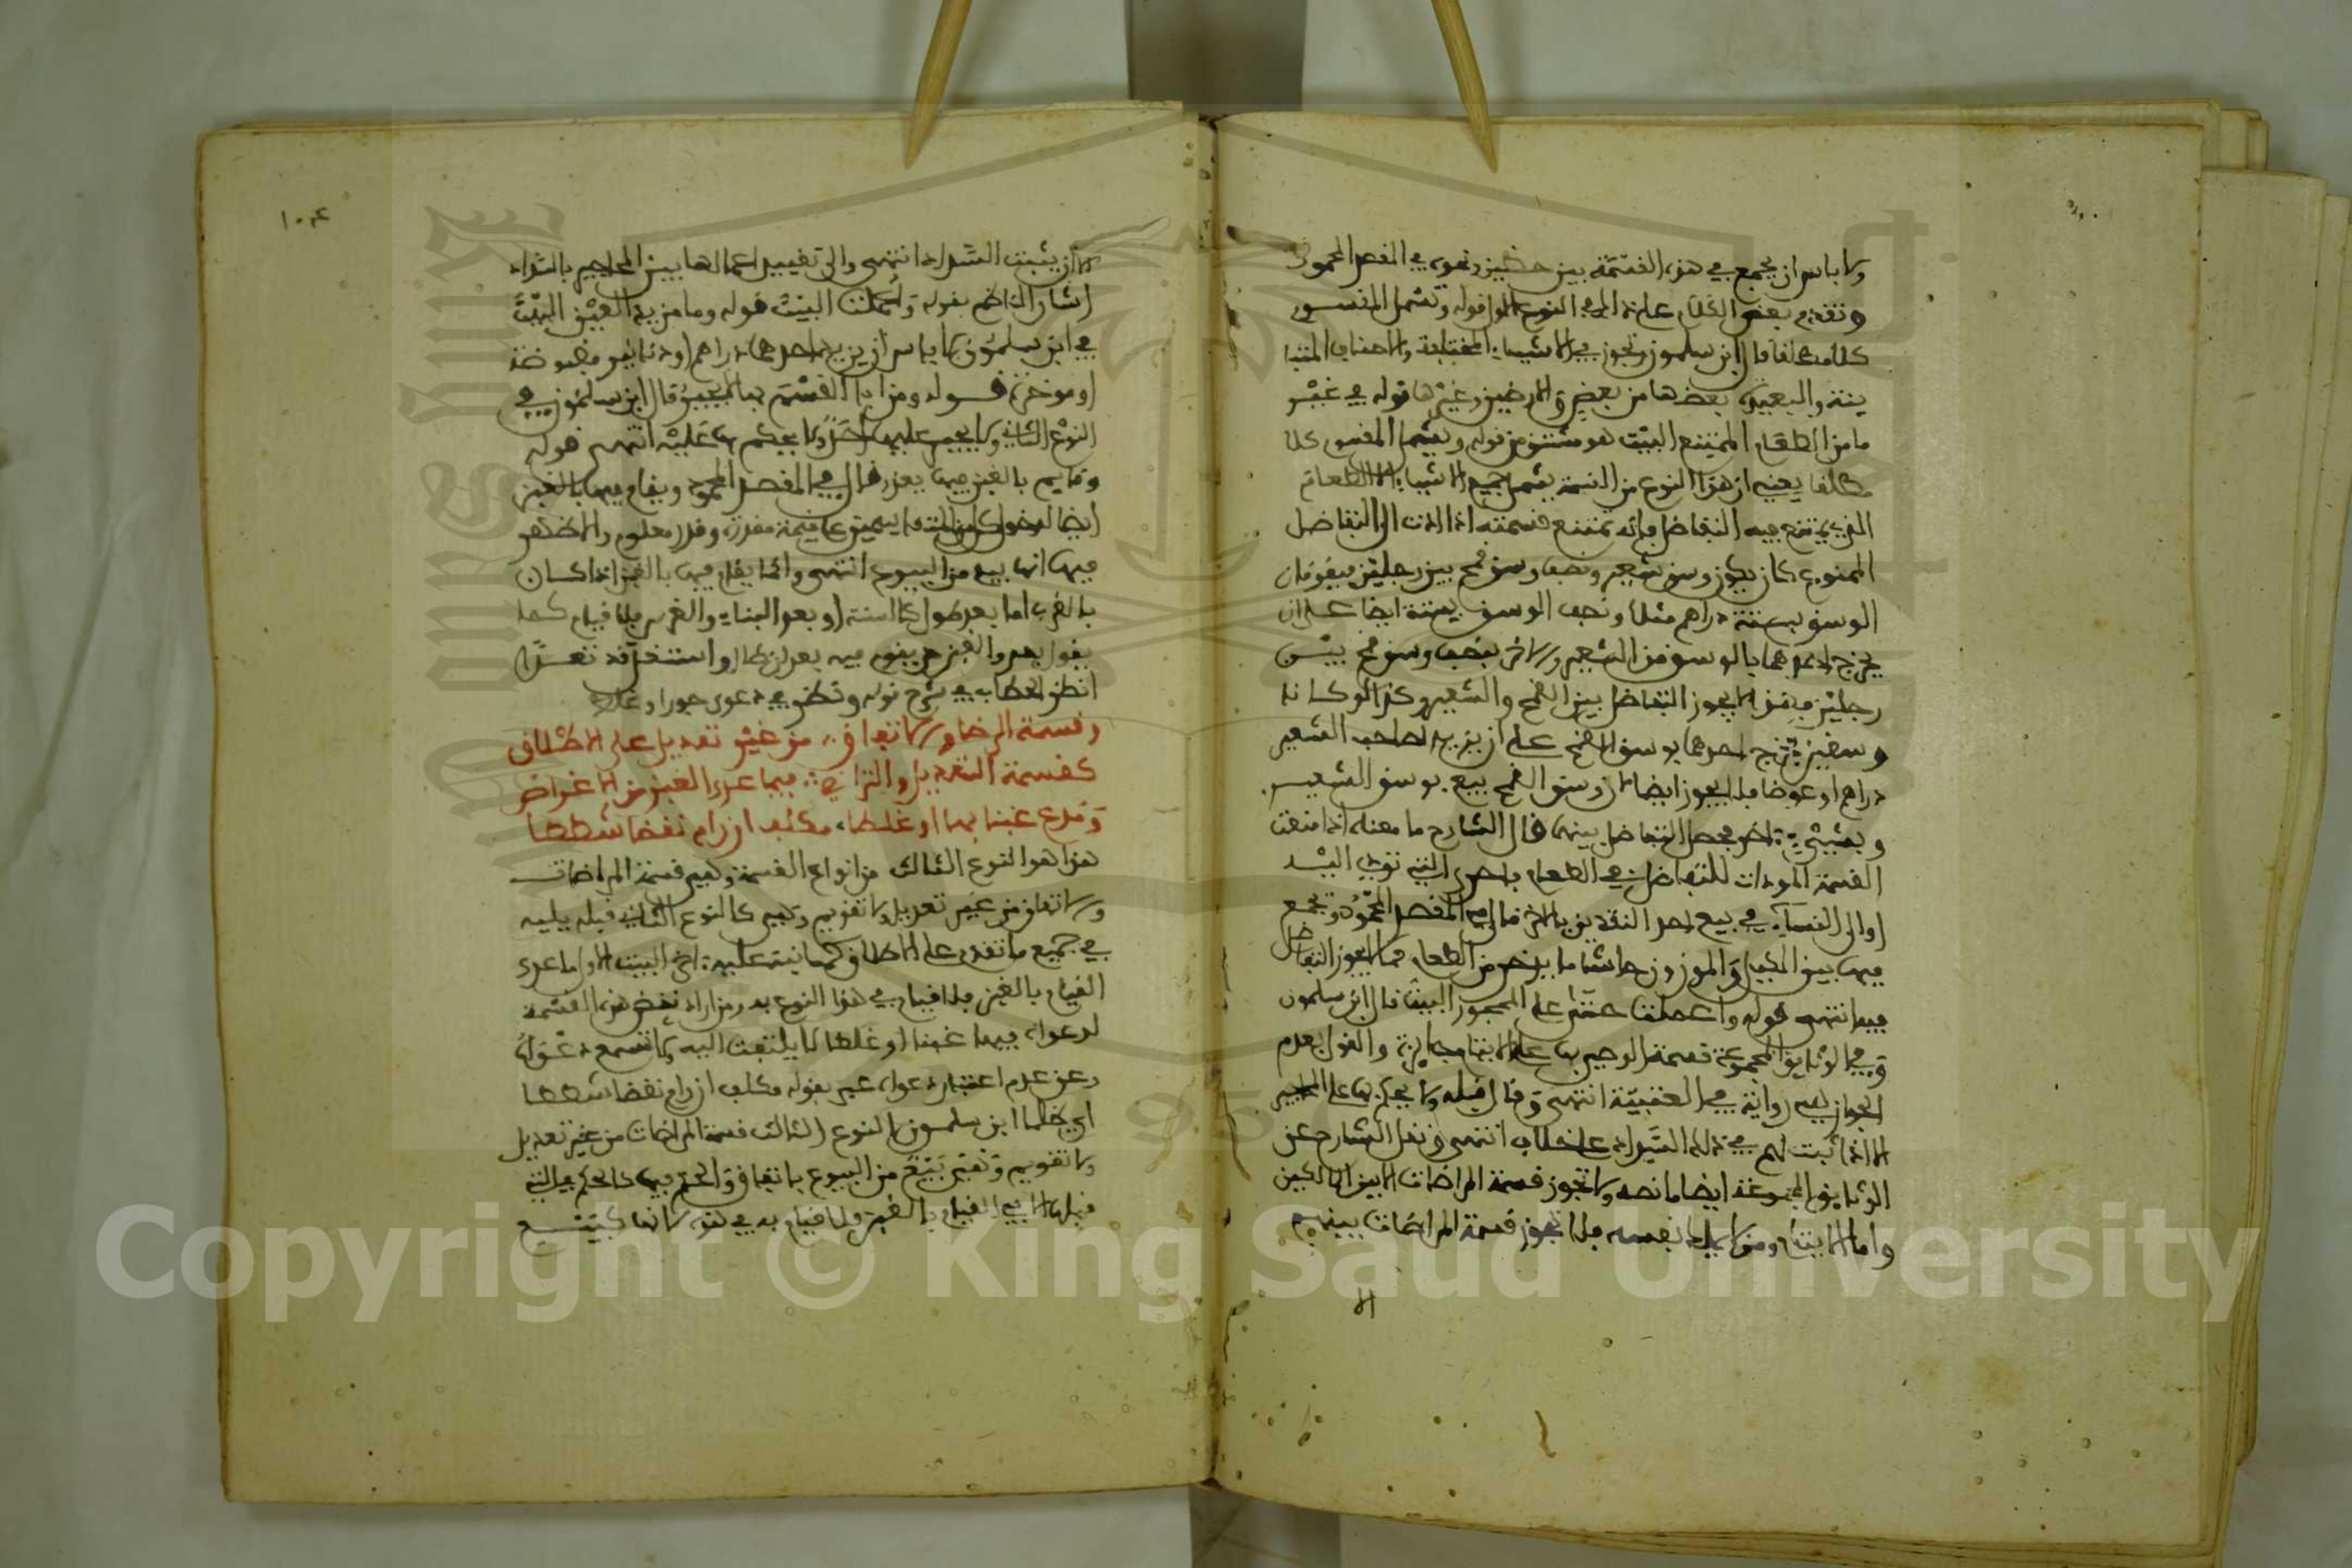 ولا باس ان يجمع في هذه القسمة بين حظين ونحوه في المفصل المحمود
وتقدم بعض الكلام على ذلك في النوع الاول قوله وتشمل المقسوم
كلا مطلقا قال ابن سلمون وتجوز في الاشياء المختلفة والاجناس المتبا
ينة والبعيد بعضها من بعض والارضين وغيرها قوله في غير
ما من الطعام الممتنع البيت هو مستثنى من قوله وتشمل المقسوم كلا
مطلقا يعني ان هذا النوع من القسمة يشمل جميع الاشياء الا الطعام
الذي يمتنع فيه التفاضل فانه تمتنع قسمته اذا ادت الى التفاضل
الممنوع كان يكون وسق شعير ونصف وسق قمح بين رجلين فيقومان
الوسق بستة دراهم مثلا ونصف الوسق بستة ايضا على ان
يخرج احدهما بالوسق من الشعير والاخر بنصف وسق قمح بين
رجلين فهذا لا يجوز التفاضل بين القمح والشعير وكذا لو كانا
وسقين فخرج احدهما بوسق القمح على ان يزيد لصاحب الشعير
دراهم او عوضا فلا يجوز ايضا لان وسق القمح بيع بوسق الشعير
وبشيء اخر فحصل التفاضل بينهما قال الشارح ما معناه انما منعت
القسمة المودات للتفاضل في الطعام باحرى التي تودي اليه
او الى النساء في بيع احد النقدين بالاخر قال في المفصل المحمود ويجمع
فيها بين المكيل والموزون حاشا ما يدخر من الطعام مما لا يجوز التفاضل
فيه انتهى قوله واعملت حتى على المحجور البيت قال ابن سلمون
وفي الوثايق المجموعة قسمة الوصي بها على الايتام جايزة والقول بعدم
الجواز هي رواية في العتبية انتهى وقال قبله ولا يحكم بها على المحاجير
الا اذا ثبت لهم في ذلك السداد على خلاف انتهى ونقل الشارح عن
الوثايق المجموعة ايضا ما نصه ولا تجوز قسمة المراضات الا بين المالكين
واما الايتام ومن لا يملك نفسه فلا تجوز قسمة المراضات بينهم
الا
١٠٤
الا ان يثبت السداد انتهى والى تقييد اعمالها بين المحاجير بالسداد
اشار الناظم بقوله واعملت البيت قوله وما مزيد العين البيت
في ابن سلمون لا باس ان يزيد احدهما دراهم او دنانير مقبوضة
او موخرة قوله ومن ابا القسم بها لا يجبر قال ابن سلمون في
النوع الثاني ولا يجبر عليها احد ولا يحكم بها عليه انتهى قوله
وقايم بالغبن فيها يعذر قال في المفصل المحمود ويقام فيها بالغبن
ايضا لدخول كل واحد منهما على قيمة مقدرة وقدر معلوم والاظهر
فيها انها بيع من البيوع انتهى وانما يقام فيها بالغبن اذا كان
بالقرب اما بعد طول كالسنة او بعد البناء والغرس فلا قيام كما
يقول بعد والغبن من يقوم فيه بعد ان طال واستغل قد تعدا
انظر الحطاب في شرح قوله ونظر في دعوى جور او غلط
وقسمة الرضا والاتفاق من غير تعديل على الاطلاق
كقسمة التعديل والتراضي فيما عدا الغبن من الاغراض
ومدع غبنا بها او غلطا مكلف ان رام نقضا شططا
هذا هو النوع الثالث من انواع القسمة وهي قسمة المراضات
والاتفاق من غير تعديل ولا تقويم وهي كالنوع الثاني قبله يليه
في جميع ما تقدم على الاطلاق كما نبه عليه اخر البيت الاول ما عدا
القيام بالغبن فلا قيام في هذا النوع به ومن اراد نقض هذه القسمة
لدعواه فيها غبنا او غلطا لا يلتفت اليه ولا تسمع دعواه
وعن عدم اعتبار دعواه عبر بقوله مكلف ان رام نقضا شططا
اي ظلما ابن سلمون النوع الثالث قسمة المراضات من غير تعديل
ولا تقويم وتعتبر بيع من البيوع باتفاق والحكم فيها كالحكم في التي
قبلها الا في القيام بالغبن فلا قيام به في هذه لانها كبيع